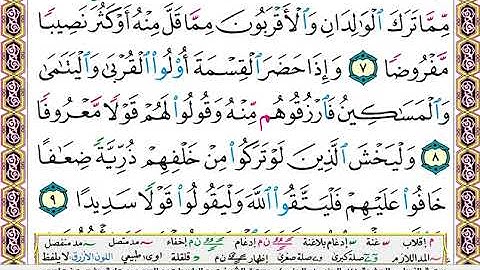 مِّمَّا تَرَكَ ٱلْوَٰلِدَانِ وَٱلْأَقْرَبُونَ مِمَّا قَلَّ مِنْهُ أَوْ كَثُرَ نَصِيبًا
مَّفْرُوضًا ٧ وَإِذَا حَضَرَ ٱلْقِسْمَةَ أُو۟لُوا۟ ٱلْقُرْبَىٰ وَٱلْيَتَٰمَىٰ
وَٱلْمَسَٰكِينُ فَٱرْزُقُوهُم مِّنْهُ وَقُولُوا۟ لَهُمْ قَوْلًا مَّعْرُوفًا
٨ وَلْيَخْشَ ٱلَّذِينَ لَوْ تَرَكُوا۟ مِنْ خَلْفِهِمْ ذُرِّيَّةً ضِعَٰفًا
خَافُوا۟ عَلَيْهِمْ فَلْيَتَّقُوا۟ ٱللَّهَ وَلْيَقُولُوا۟ قَوْلًا سَدِيدًا ٩
م إقلاب غنة إدغام بلاغنة إدغام إخفاء مد متصل مد منفصل
المد اللازم صلة كبرى وصلة صغرى إظهار قلقلة أوى طبيعي اللون الأزرق لا يلفظ